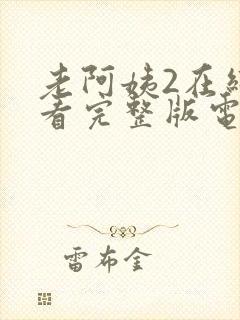 老阿姨2在線
看完整版電
雷布金